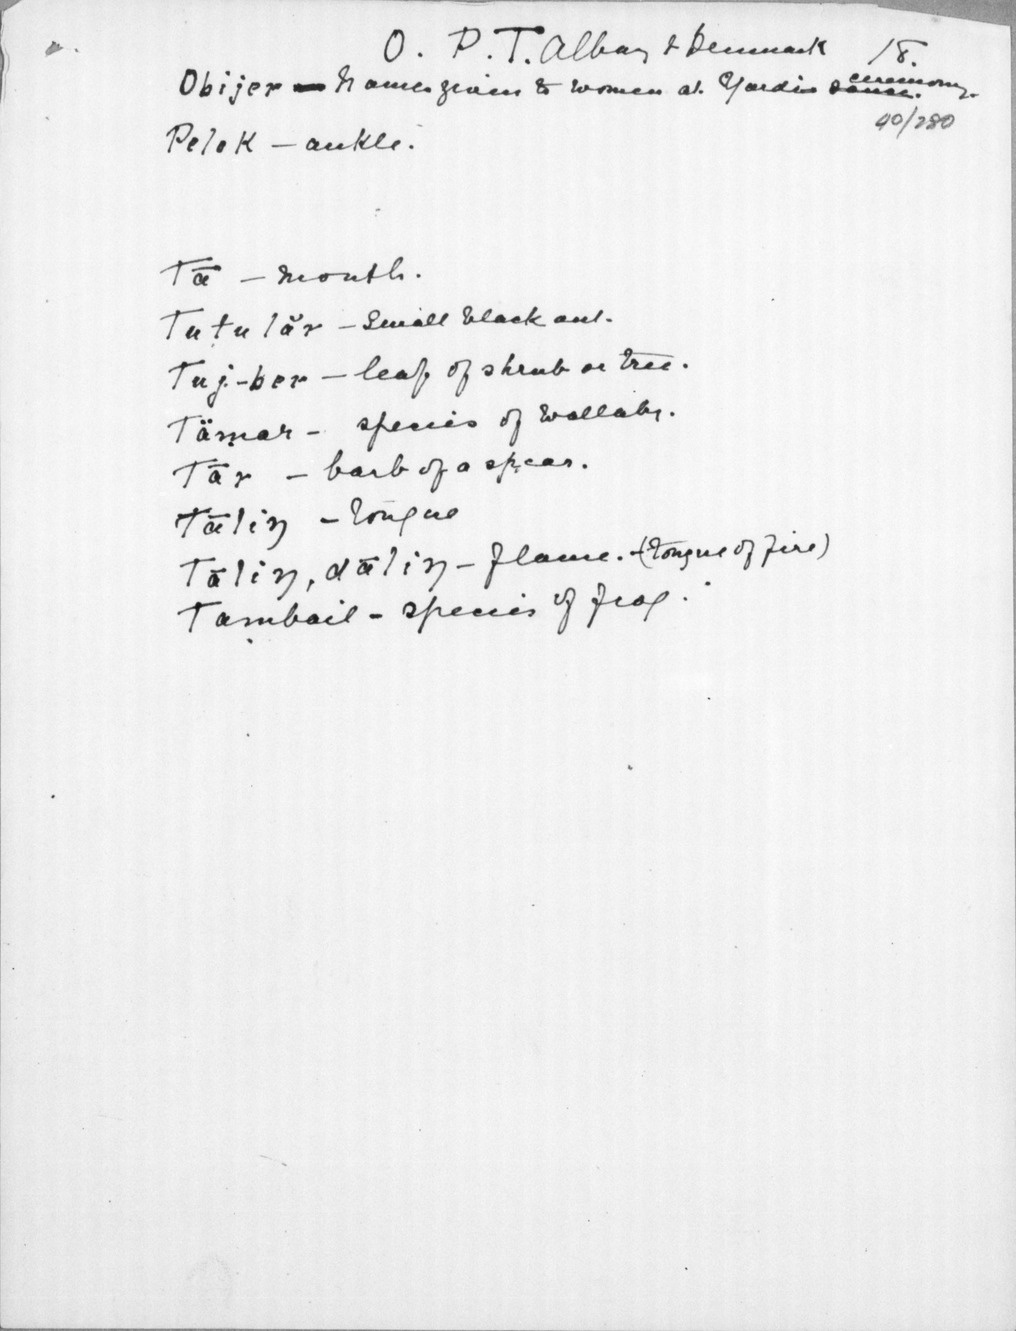 O. P. T. Albany & Denmark 18.
Obijer — Names given to women at Yardie dance. ceremony.
40/280
Pelok — ankle.
Tā — mouth.
Tutulăr — Small black ant.
Tuj-ber — leaf of shrub or tree.
Tämar - species of wallaby.
Tār — barb of a spear.
Tāliŋ — tongue
Tāliŋ, dāliŋ — flame. (tongue of fire)
Tambail - species of frog.